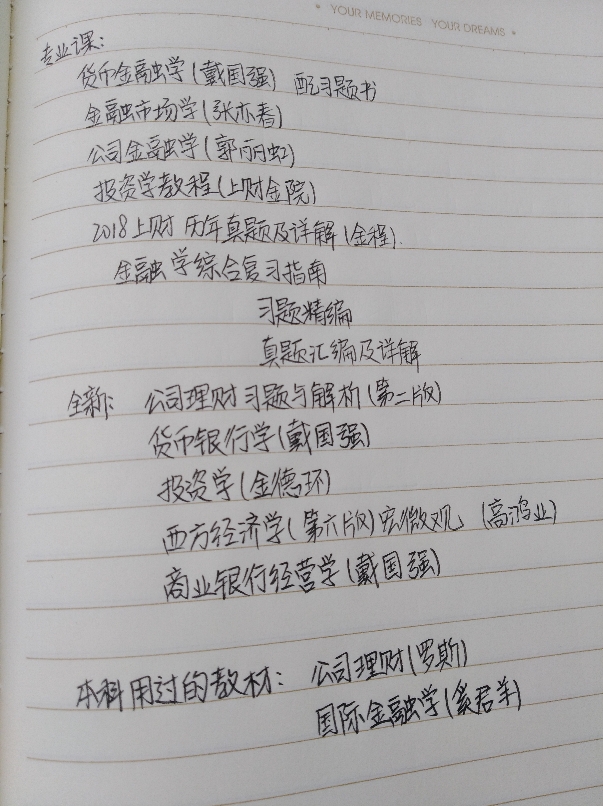 YOUR MEMORIES YOUR DREAMS
专业课:
货币金融学(戴国强) 配习题书
金融市场学(张亦春)
公司金融学(郭丽虹)
投资学教程(上财金院)
2018上财 历年真题及详解(金程).
金融学综合复习指南
习题精编
真题汇编及详解
全新: 公司理财习题与解析(第二版)
货币银行学(戴国强)
投资学(金德环)
西方经济学(第六版)宏微观 (高鸿业)
商业银行经营学(戴国强)
本科用过的教材: 公司理财(罗斯)
国际金融学(奚君羊)